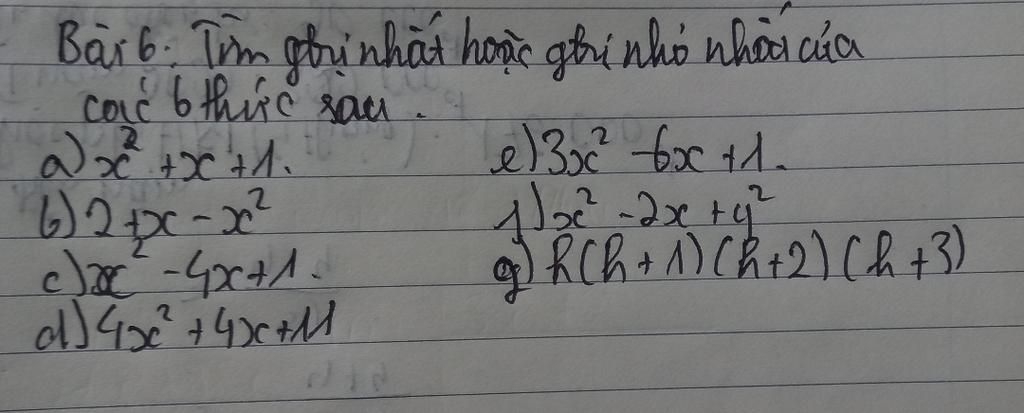 Bài 6: Tìm gtrị nhất hoặc gtrị nhỏ nhất của
các b thức sau.
a) x² + x + 1.
b) 2 + x - x²
c) x² - 4x + 1.
d) 4x² + 4x + 11
e) 3x² - 6x + 1.
f) x² - 2x + y²
g) h(h + 1) (h + 2) (h + 3)